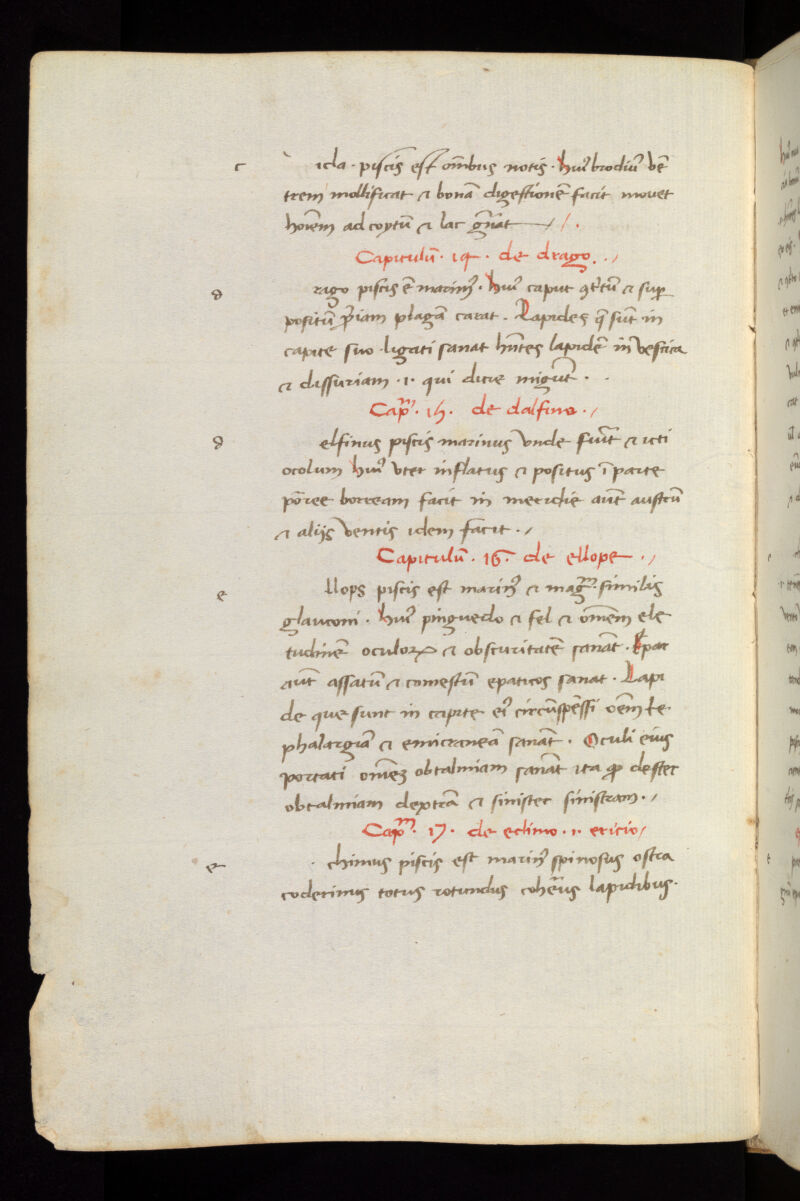 c icla · piscis est oi͞bus notis · hui᷒ brodiu͞ ve͞
trem mollificat ⁊ bona͞ digestione͞ facit mouet
hoi͞em ad coytu͞ ⁊ lac gn͞at
Capitulu͞ · 14 · de drago ·
d rago piscis e͞ marin᷒ · hui᷒ caput ⁊ sup͞
positu͞ plaga͞ curat · Lapides q͞ su͞t in
capite suo ligati sanat hn͞tes lapide͞ in vescica
⁊ dissuriam · i · qui dicie mi͞gu͞t ·
Cap͞ · 15 · de dalfino ·
d elfinus piscis marinus vnde fiu͞t ⁊ icti
ocolum hui᷒ vter inflatus ⁊ positus i͞ parte
borream facit in meridie aut͞ austru͞
⁊ aliis ventis idem facit ·
Capitulu͞ · 16 · de ellope ·
e llops piscis est marin᷒ ⁊ similis
glauconi · hui᷒ pinguedo ⁊ fel ⁊ om͞em ele
tudine͞ oculoꝝ ⁊ obscuritate͞ sana͞t · Epar
aut͞ assatu͞ ⁊ comestu͞ epaticos sanat · Lapi
de que sunt in capite ei᷒ circu͞spe͞ssi oe͞m ke
phalargia͞ ⁊ emicranea͞ sana͞t · Oculi eius
portati om͞e͞ obtalmiam sana͞t ita dester
obtalmiam dextra͞ ⁊ sinister sinistram ·
Cap͞ · 17 · de echino · i · ericio
e chimus piscis est marin᷒ spinosus ostra
coderimus totus rotundus lapidibus ·